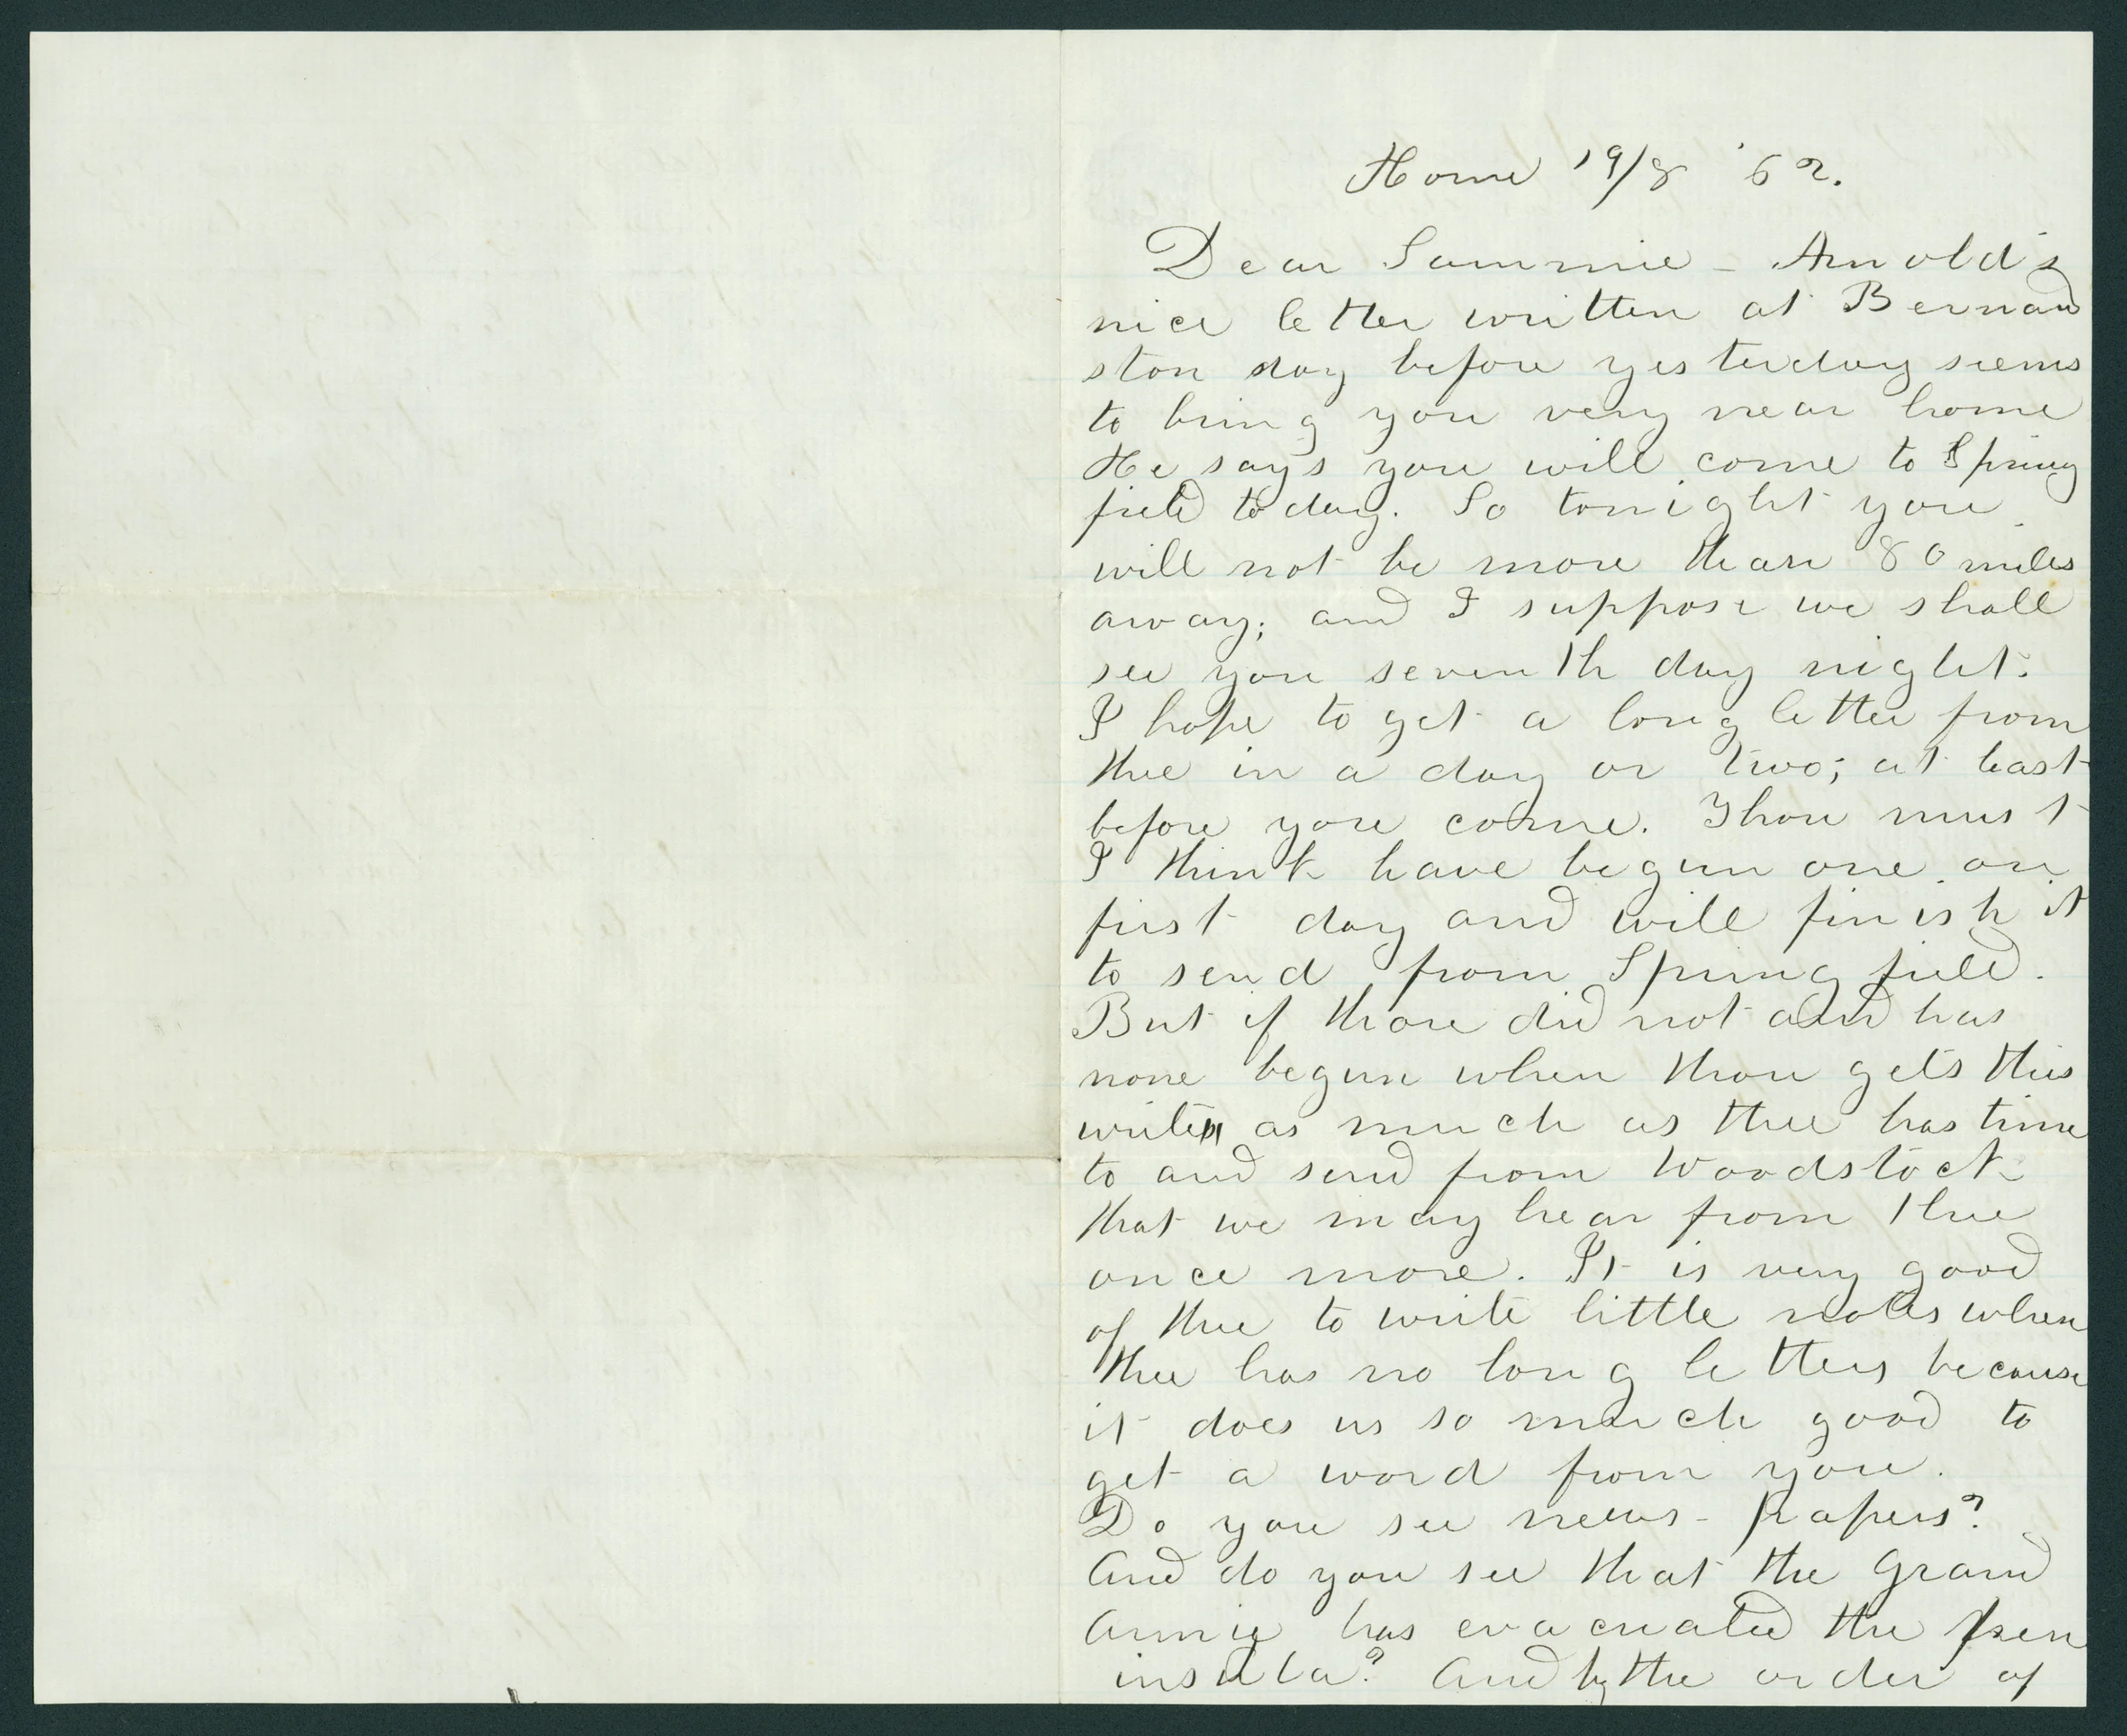 Home 19/8 '62.
Dear Sammie - Arnold's
nice letter written at Bernard
ston day before yesterday seems
to bring you very near home
He says you will come to Spring
field today. So tonight you
will not be more than 80 miles
away; and I suppose we shall
see you seventh day night.
I hope to get a long letter from
thee in a day or two; at least
before you come. Thou must
I think have begun one on
first day and will finish it
to send from Springfield.
But if thou did not and has
none begun when thou gets this
write as much as thee has time
to and send from Woodstock
that we may hear from thee
once more. It is very good
of thee to write little notes when
thee has no long letters because
it does us so much good to
get a word from you.
Do you see news-papers?
And do you see that the Grand
Army has evacuated the pen
insula? And by the order of